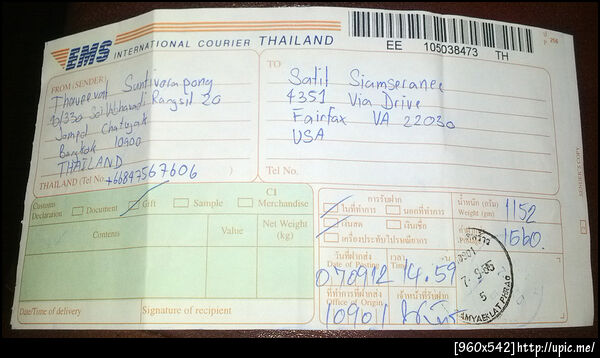 EMS INTERNATIONAL COURIER THAILAND
EE 105038473 TH
FROM (SENDER)
Rangsit 20
Bangkok 10900
THAILAND
THAILAND (Tel No. +66847567606 )
TO
Satit Siamseranee
4351 Via Drive
Fairfax VA 22030
USA
Tel No.
SENDER'S COPY
Customs Declaration
Document
Gift
Sample
C1
Merchandise
Contents
Value
Net Weight (kg)
Date/Time of delivery
Signature of recipient
การรับฝาก
ในที่ทำการ
นอกที่ทำการ
เงินสด
เงินเชื่อ
เครื่องประทับไปรษณียากร
น้ำหนัก (กรัม)
Weight (gm)
1152
1560.
วันที่ฝากส่ง
Date of Posting
เวลา
Time
070912 14.59
ที่ทำการที่ฝากส่ง
Office of Origin
เจ้าหน้าที่รับฝาก
10901
[960x542]http://upic.me/